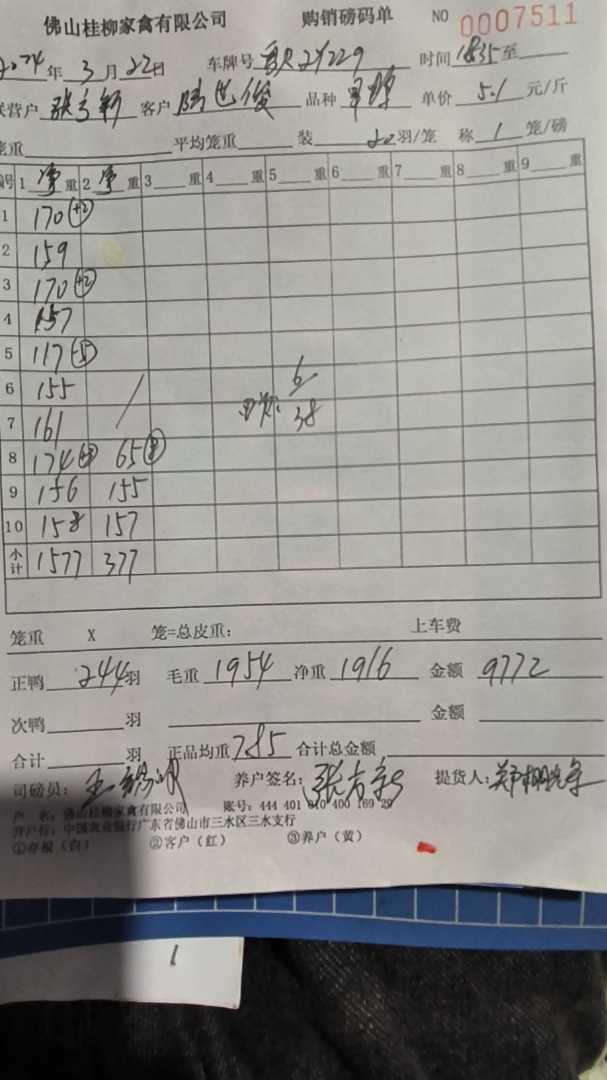 佛山桂柳家禽有限公司 购销磅码单 NO 0007511
2024年 3月 22日 车牌号 2Y229 时间 1835 至
联营户 客户 品种 单价 5.1 元/斤
笼重 平均笼重 装 20 羽/笼 称 1 笼/磅
编号 1 净 重 2 净 重 3 重 4 重 5 重 6 重 7 重 8 重 9 重
1 170 (+2)
2 159
3 170 (+2)
4 157
5 117 (-5)
6 155 6
7 161 38
8 174 65
9 156 155
10 158 157
小计 1577 377
笼重 X 笼=总皮重: 上车费
正鸭 244 羽 毛重 1954 净重 1916 金额 9772
次鸭 羽 金额
合计 羽 正品均重 7.85 合计总金额
司磅员: 养户签名: 提货人:
户 名: 佛山桂柳家禽有限公司 账号: 444 401 010 400 169 29
开户行: 中国农业银行广东省佛山市三水区三水支行
①存根(白) ②客户(红) ③养户(黄)
1